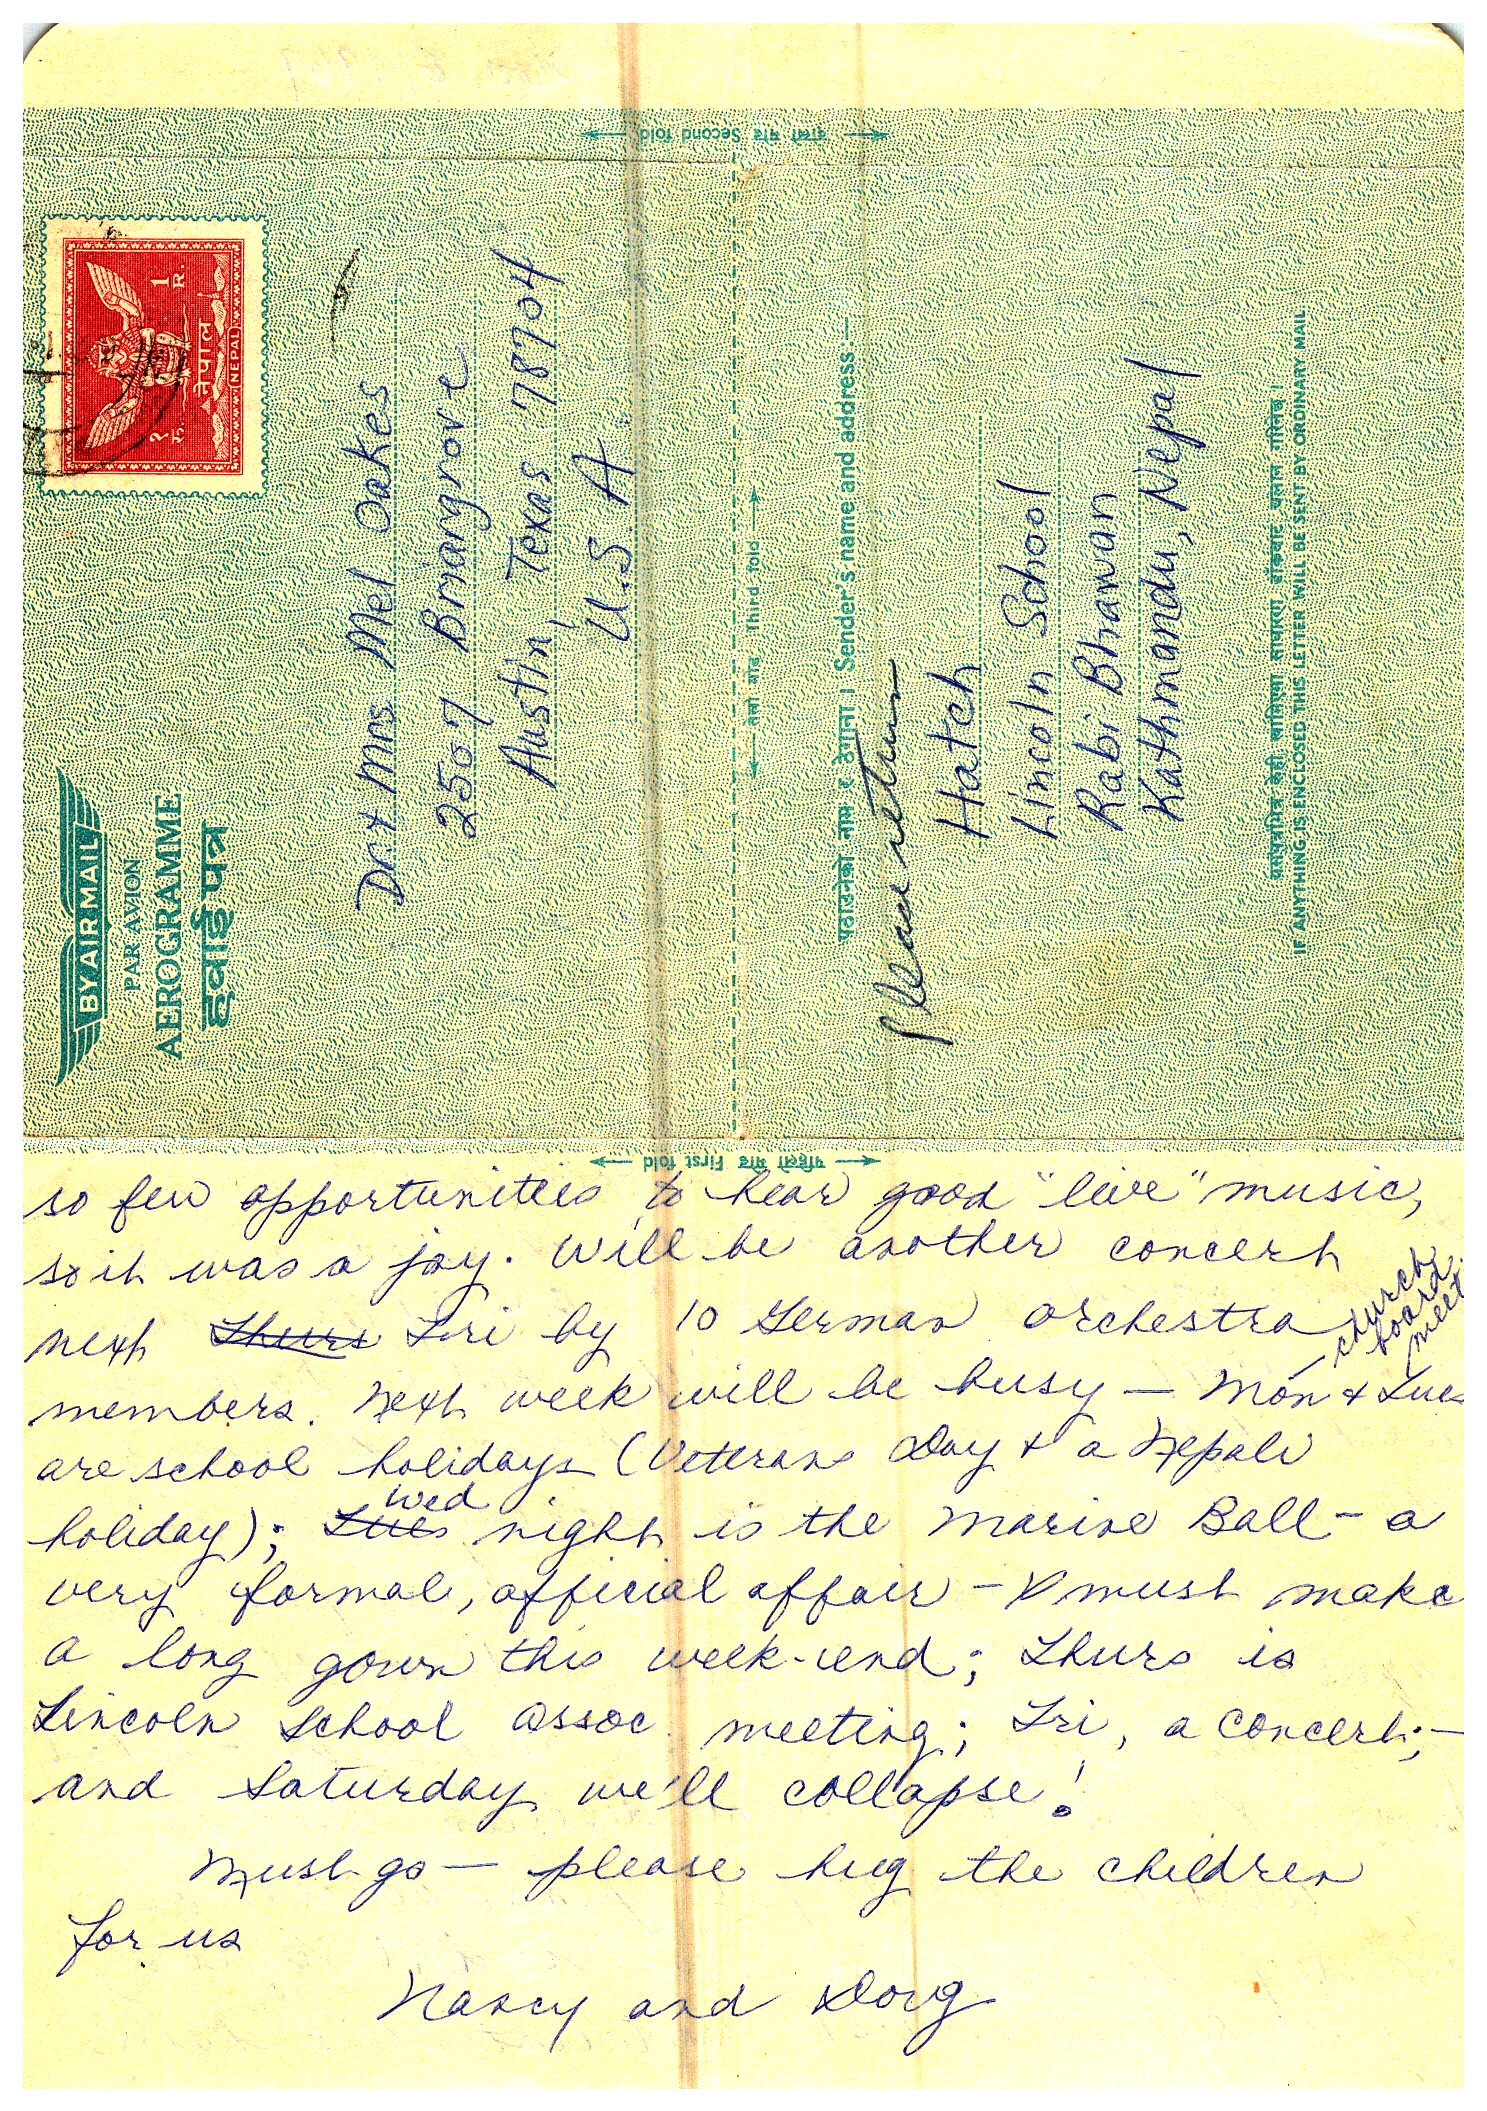 पहिलो मोड First fold
दोस्रो मोड Second fold
BY AIR MAIL
PAR AVION
AEROGRAMME
हवाई पत्र
१ रु.
1 R.
नेपाल
(NEPAL)
Dr. & Mrs Mel Oakes
2507 Briargrove
Austin, Texas 78704
U.S.A
तेस्रो मोड Third fold
पठाउनेको नाम र ठेगाना । Sender's name and address:—
please return
Hatch
Lincoln School
Rabi Bhawan
Kathmandu, Nepal
IF ANYTHING IS ENCLOSED THIS LETTER WILL BE SENT BY ORDINARY MAIL
so few opportunities to hear good "live" music,
so it was a joy. Will be another concert
next Thurs Fri by 10 German orchestra
members. Next week will be busy — Mon & Tues
church board meet
are school holidays (Veterans Day & a Nepali
holiday); Tues Wed night is the Marine Ball - a
very formal, official affair - I must make
a long gown this week-end; Thurs is
Lincoln School Assoc. meeting; Fri, a concert; —
and Saturday we'll collapse!
Must go — please hug the children
for us
Nancy and Doug